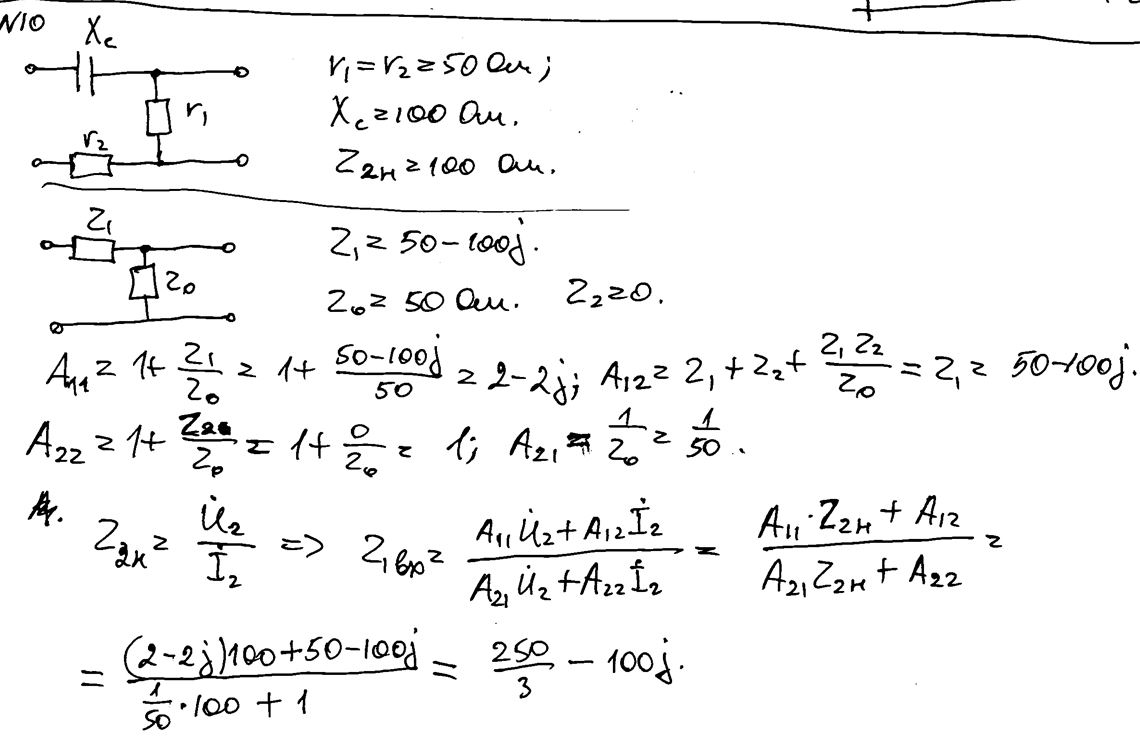 N10
X_c
r_1 = r_2 = 50 Ом;
r_1
X_c = 100 Ом.
r_2
Z_2н = 100 Ом.
Z_1
Z_1 = 50-100j.
Z_0
Z_0 = 50 Ом. Z_2 = 0.
A_11 = 1+ Z_1/Z_0 = 1+ (50-100j)/50 = 2-2j; A_12 = Z_1+Z_2+ (Z_1 Z_2)/Z_0 = Z_1 = 50-100j.
A_22 = 1+ Z_2/Z_0 = 1+ 0/Z_0 = 1; A_21 = 1/Z_0 = 1/50.
Z_2н = U̇_2/İ_2 => Z_1вх = (A_11 U̇_2 + A_12 İ_2)/(A_21 U̇_2 + A_22 İ_2) = (A_11·Z_2н + A_12)/(A_21 Z_2н + A_22) =
= ((2-2j)100+50-100j)/(1/50·100 + 1) = 250/3 - 100j.